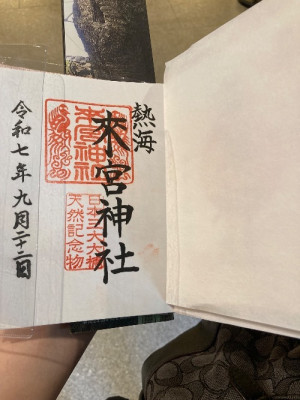 熱海
來宮神社
來宮神社
日本三大大楠
天然記念物
令和七年九月二十二日